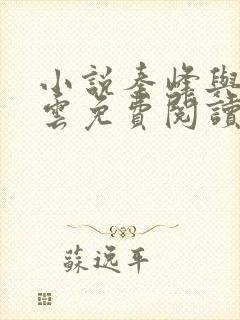 小説秦峰與
雲免費閱讀
蘇逸平